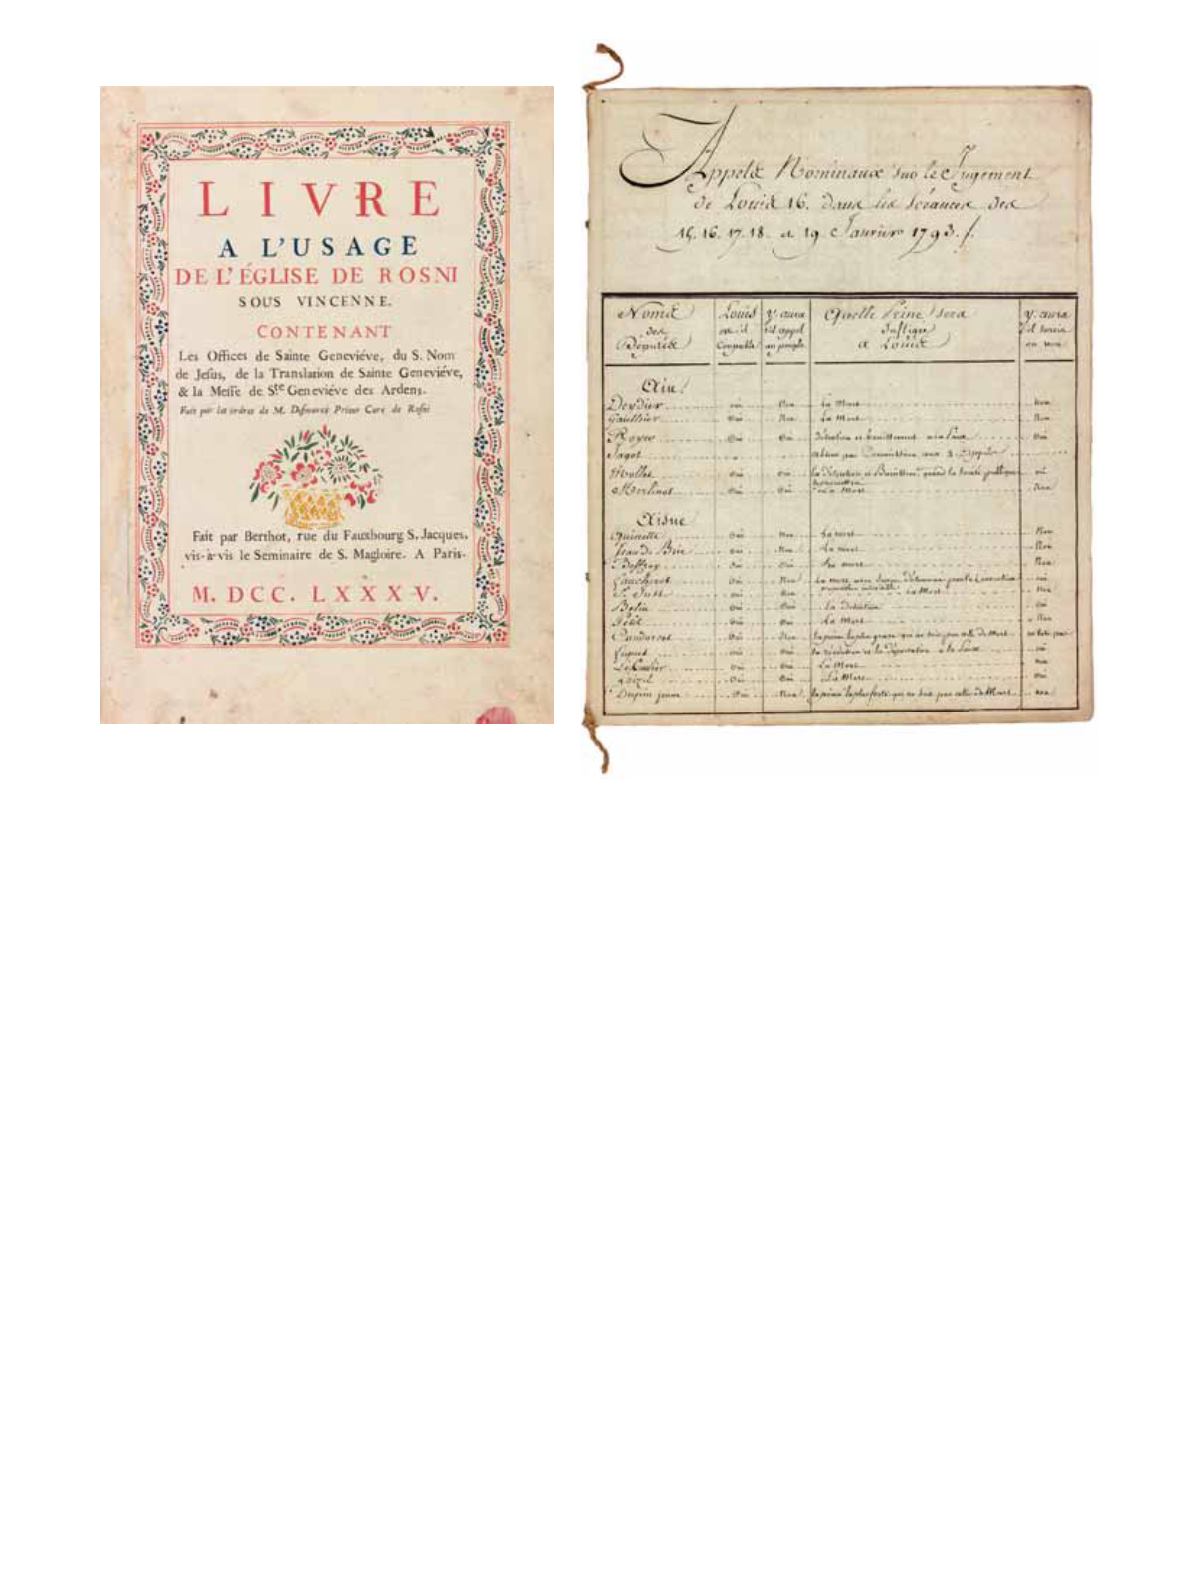 LIVRE
A L'USAGE
DE L'ÉGLISE DE ROSNI
SOUS VINCENNE.
CONTENANT
Les Offices de Sainte Geneviéve, du S. Nom
de Jesus, de la Translation de Sainte Geneviéve,
& la Messe de Ste Geneviéve des Ardens.
Fait par les ordres de M. Desmarez Prieur Curé de Rosni
Fait par Berthot, rue du Fauxbourg S. Jacques,
vis-à-vis le Seminaire de S. Magloire. A Paris.
M. DCC. LXXXV.
Appels Nominaux sur le Jugement
de Louis 16. dans les séances des
15. 16. 17. 18. et 19 Janvier 1793.
Noms des Députés
Louis est il Coupable
y. aura t'il appel au peuple
Quelle Peine sera Infligée a Louis
y. aura t'il sursis ou non
Ain
Deydier oui Non La Mort Non
Gauthier Oui Non La Mort Non
Royer Oui Oui Détention et bannissement à la Paix Oui
Jagot absent par Commission aux 3 Appels
Mollet Oui Oui la détention et Bannissement quand la sureté publique oui
Merlinot Oui Oui La Mort Non
Aisne
Quinette Oui Non La mort Non
Jean de Brie Oui Non La mort Non
Beffroy Oui Oui La mort Non
Oui Non La mort
S. Just Oui Non La Mort Non
Belin Oui Oui La Détention oui
Petit Oui Oui La Mort Non
Condorcet Oui Non la peine la plus grave qui ne soit pas celle de Mort
Fiquet oui Oui la réclusion et la déportation à la Paix oui
Le Carlier Oui Oui La Mort Non
Loizel Oui Oui La Mort Oui
Dupin jeune Oui Non la peine la plus forte qui ne soit pas celle de Mort non